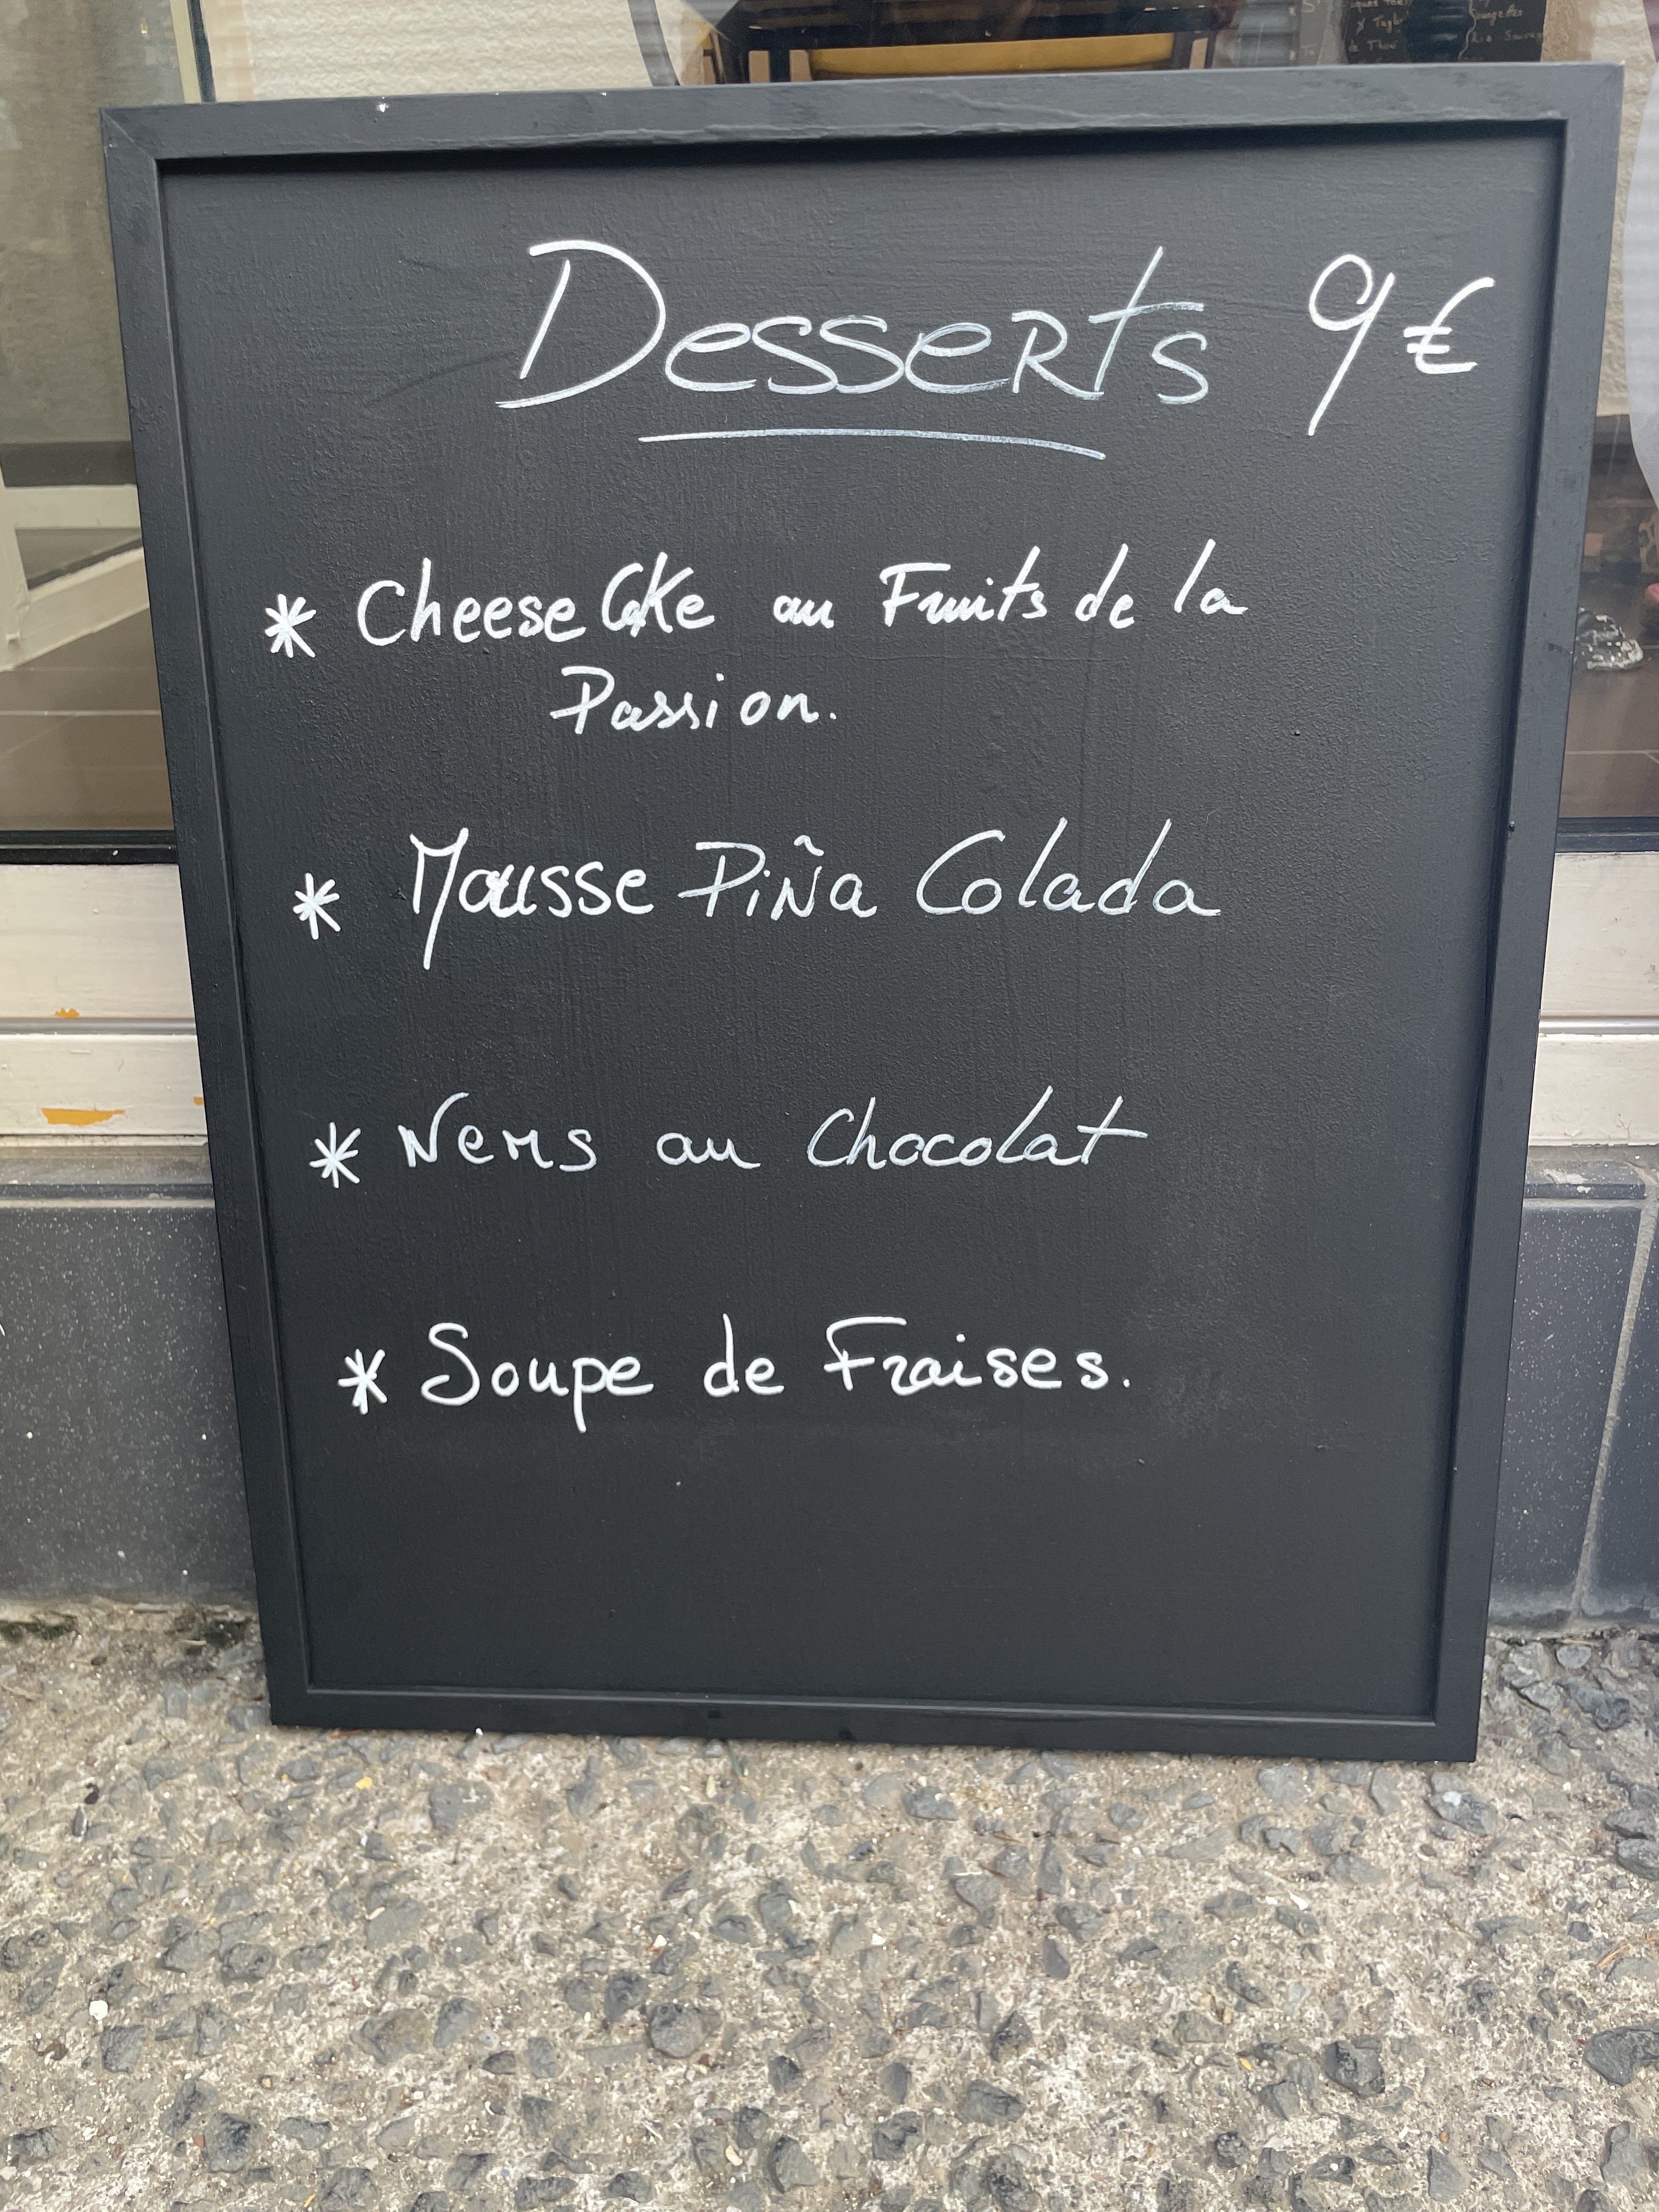 Desserts 9€
* CheeseCake au Fruits de la
Passion.
* Mousse Piña Colada
* Nems au Chocolat
* Soupe de Fraises.